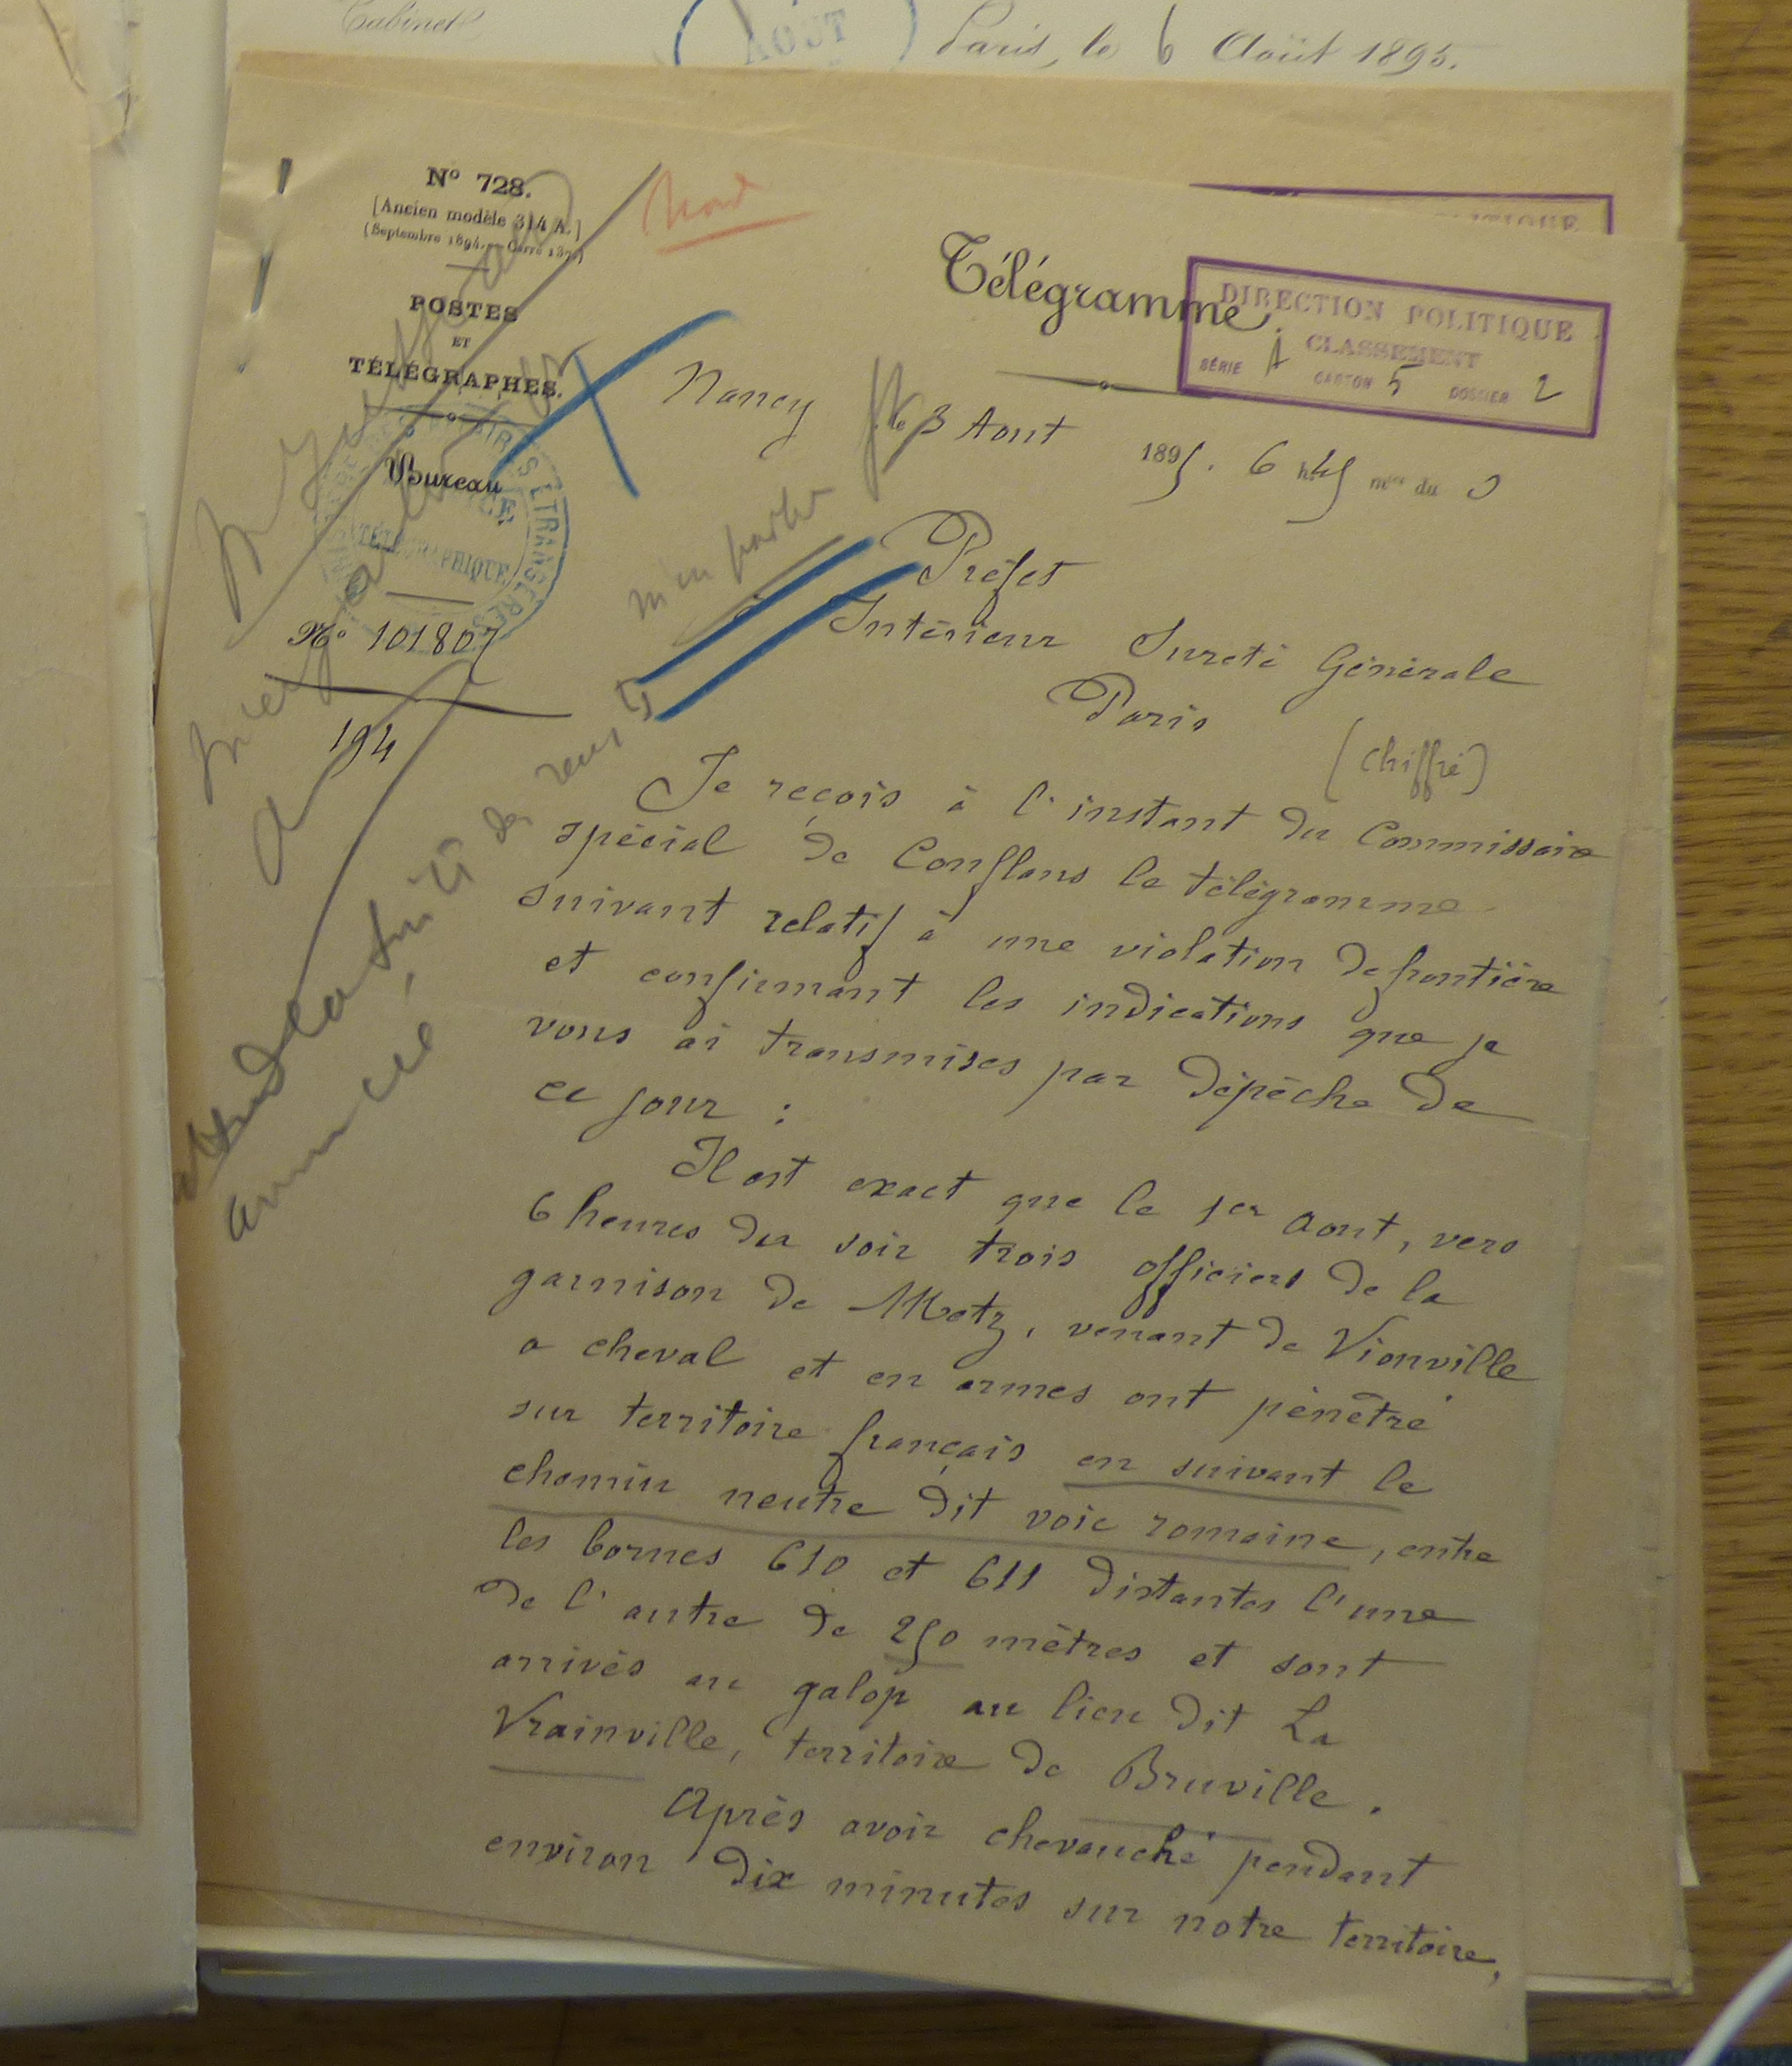 Cabinet
AOUT
Paris, le 6 Août 1895.
N° 728.
[Ancien modèle 314 A.]
(Septembre 1894. — Carré
POSTES
ET
TÉLÉGRAPHES.
Bureau
TÉLÉGRAPHIQUE
N° 101807
194
Nord
Télégramme.
DIRECTION POLITIQUE
CLASSEMENT
SÉRIE A CARTON 5 DOSSIER 2
Nancy
le 3 Aout 1895. 6 h 45 mes du S
m'en parler
Préfet
à Intérieur Sureté Générale
Paris
(Chiffré)
Je reçois à l'instant du Commissaire
spécial de Conflans le télégramme
suivant relatif à une violation de frontière
et confirmant les indications que je
vous ai transmises par dépêche de
ce jour :
Il est exact que le 1er aout, vers
6 heures du soir trois officiers de la
garnison de Metz, venant de Vionville
a cheval et en armes ont pénétré
sur territoire français en suivant le
chemin neutre dit voie romaine, entre
les bornes 610 et 611 distantes l'une
de l'autre de 250 mètres et sont
arrivés au galop au lieu dit La
Vrainville, territoire de Bruville.
Après avoir chevauché pendant
environ dix minutes sur notre territoire,
attend la suite des
annoncée